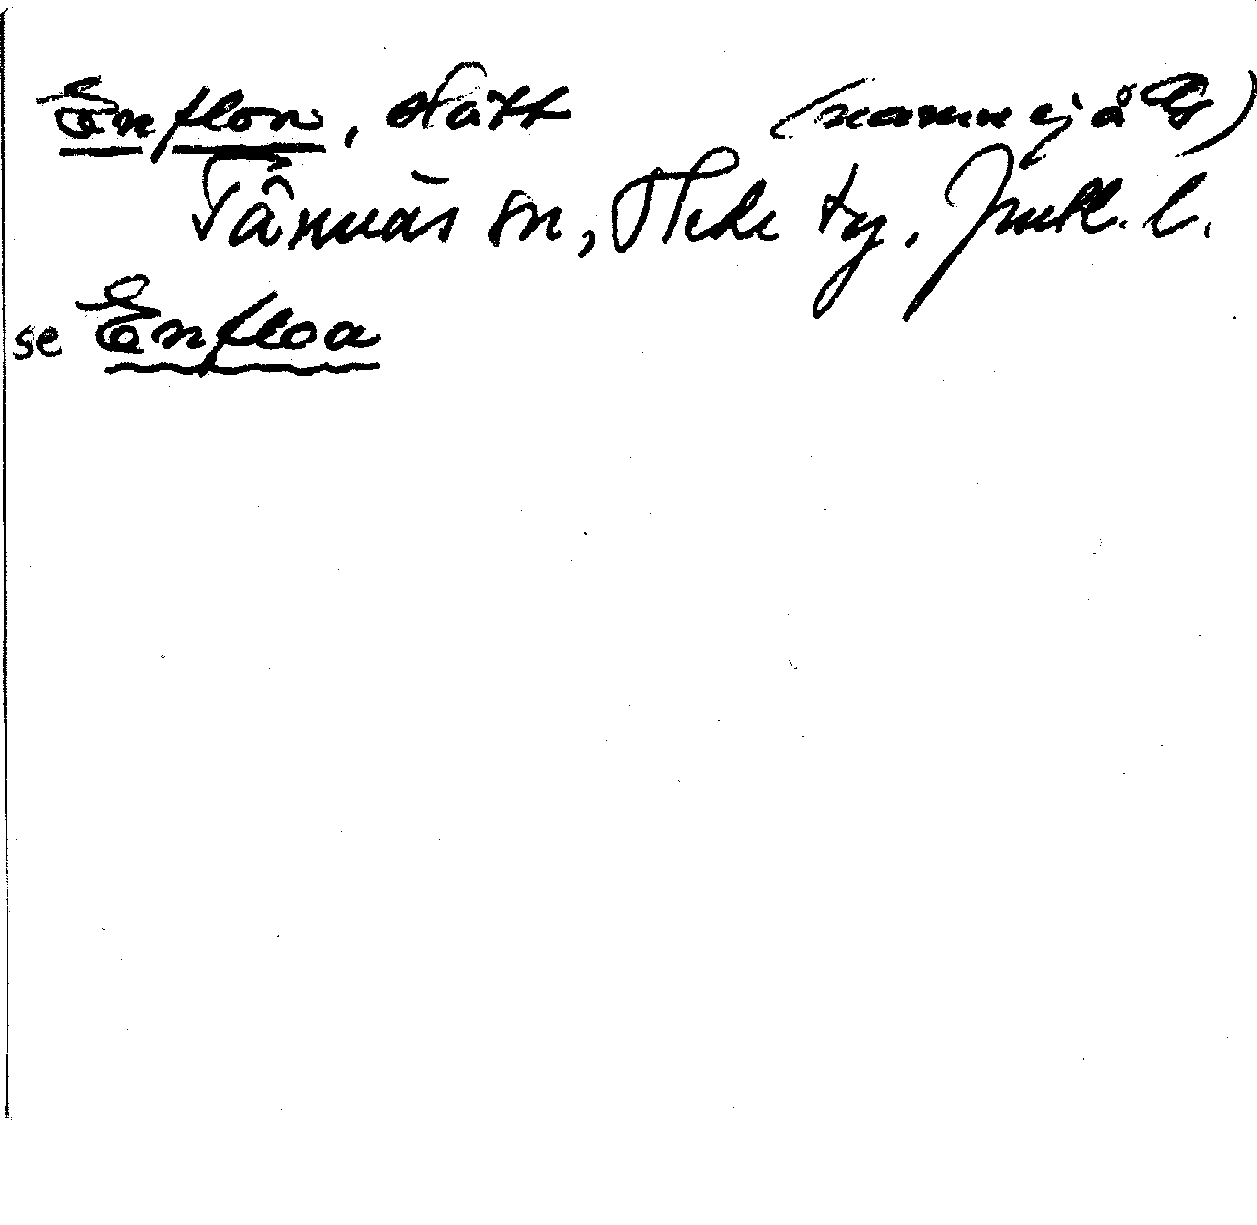 Enflon, slått (namn ej å
Tännäs sn, Hede tg. Jmtl. l.
se Enfloa